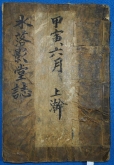 甲寅六月 上澣
氷蘗堂誌